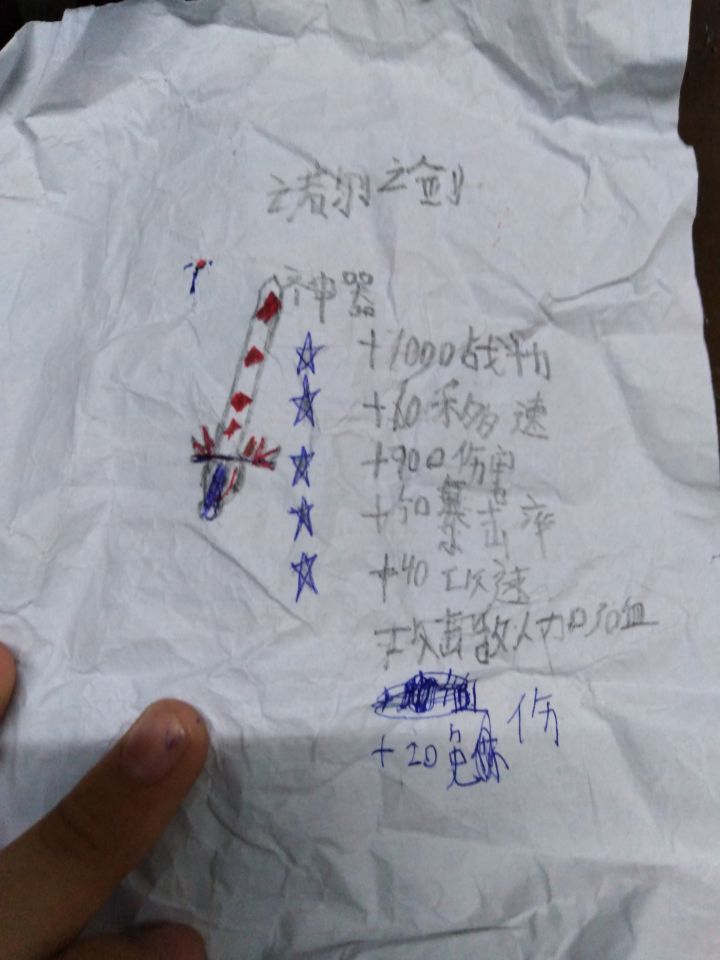 诺羽之剑
神器
+1000战力
+60移速
+900伤害
+50暴击率
+40攻速
攻击敌人加30血
+20免伤